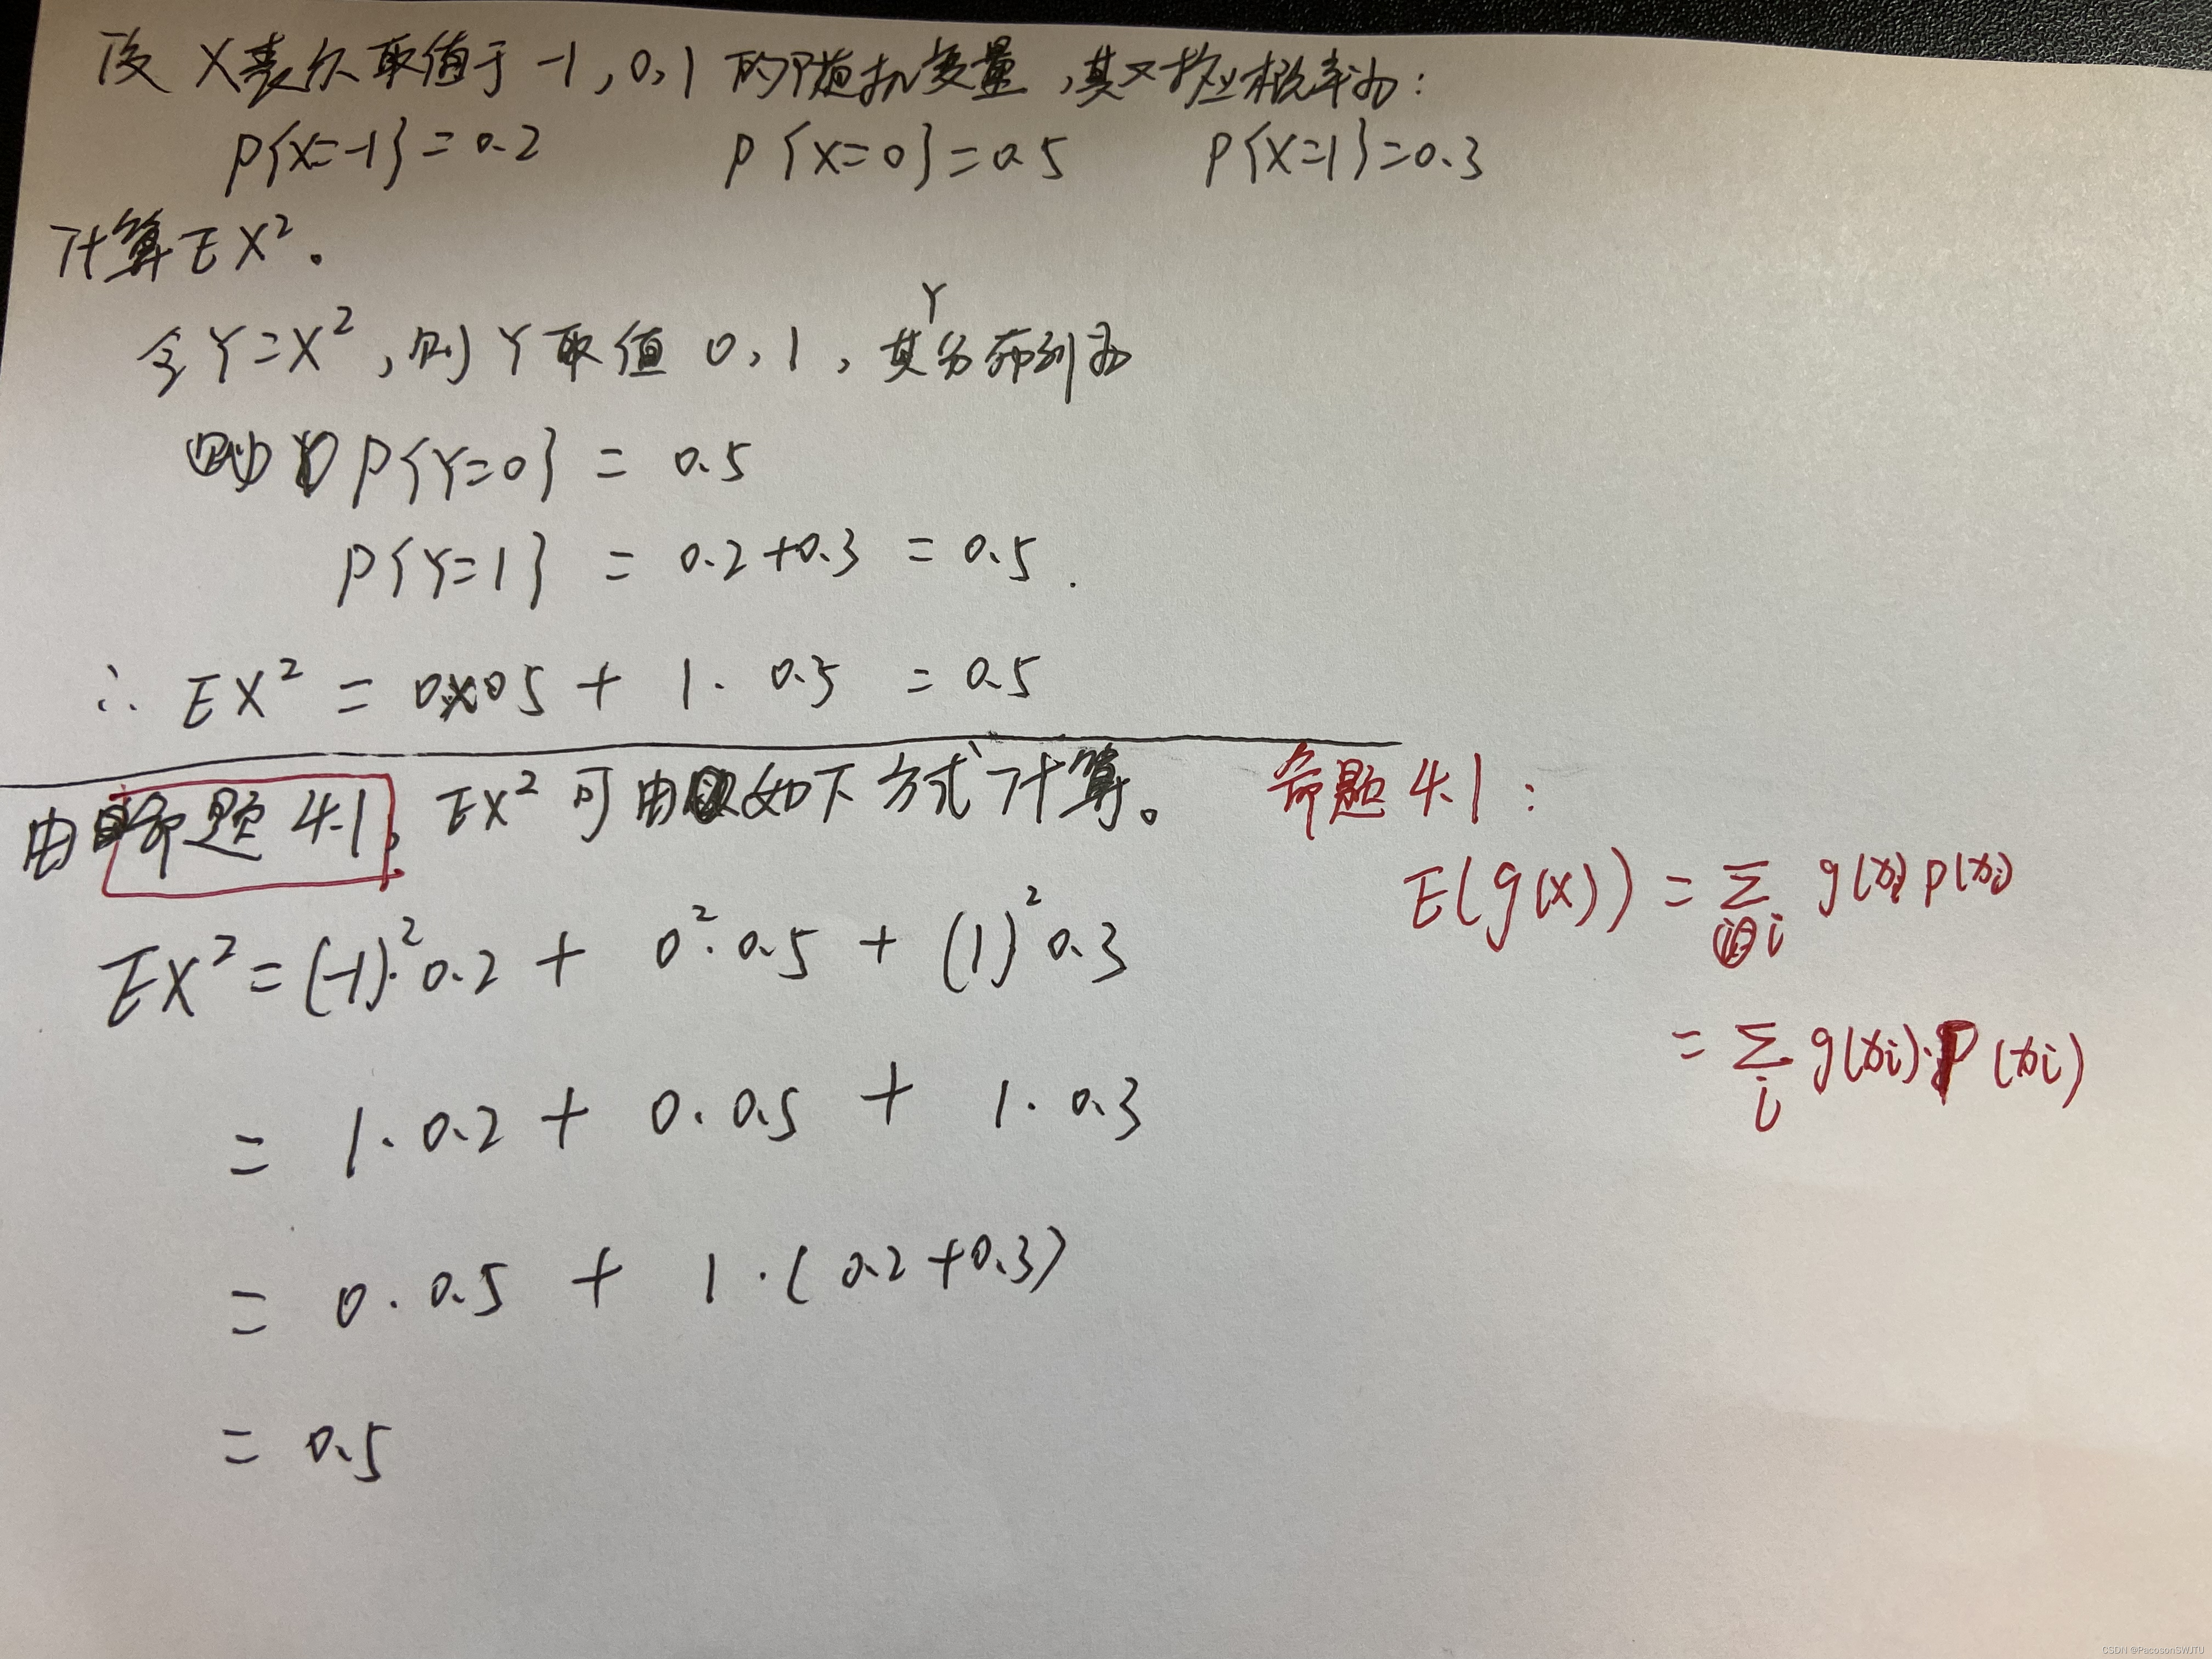 设 X表示取值于 -1, 0, 1 的随机变量, 其对应概率为:
P{X=-1}=0.2 P{X=0}=0.5 P{X=1}=0.3
计算EX².
Y
令Y=X², 则Y取值 0, 1, 其分布列为
P{Y=0} = 0.5
P{Y=1} = 0.2+0.3 = 0.5.
∴ EX² = 0×0.5 + 1·0.5 = 0.5
由命题4.1, EX²可由如下方式计算。
EX² = (-1)²·0.2 + 0²·0.5 + (1)²0.3
= 1·0.2 + 0·0.5 + 1·0.3
= 0·0.5 + 1·(0.2+0.3)
= 0.5
命题4.1:
E(g(x)) = Σ i g(xi) p(xi)
= Σ i g(xi)·P(xi)
CSDN @PacosonSWJTU